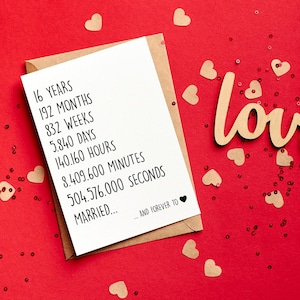 16 YEARS
192 MONTHS
832 WEEKS
5,840 DAYS
140,160 HOURS
8,409,600 MINUTES
504,576,000 SECONDS
MARRIED...
... AND FOREVER TO